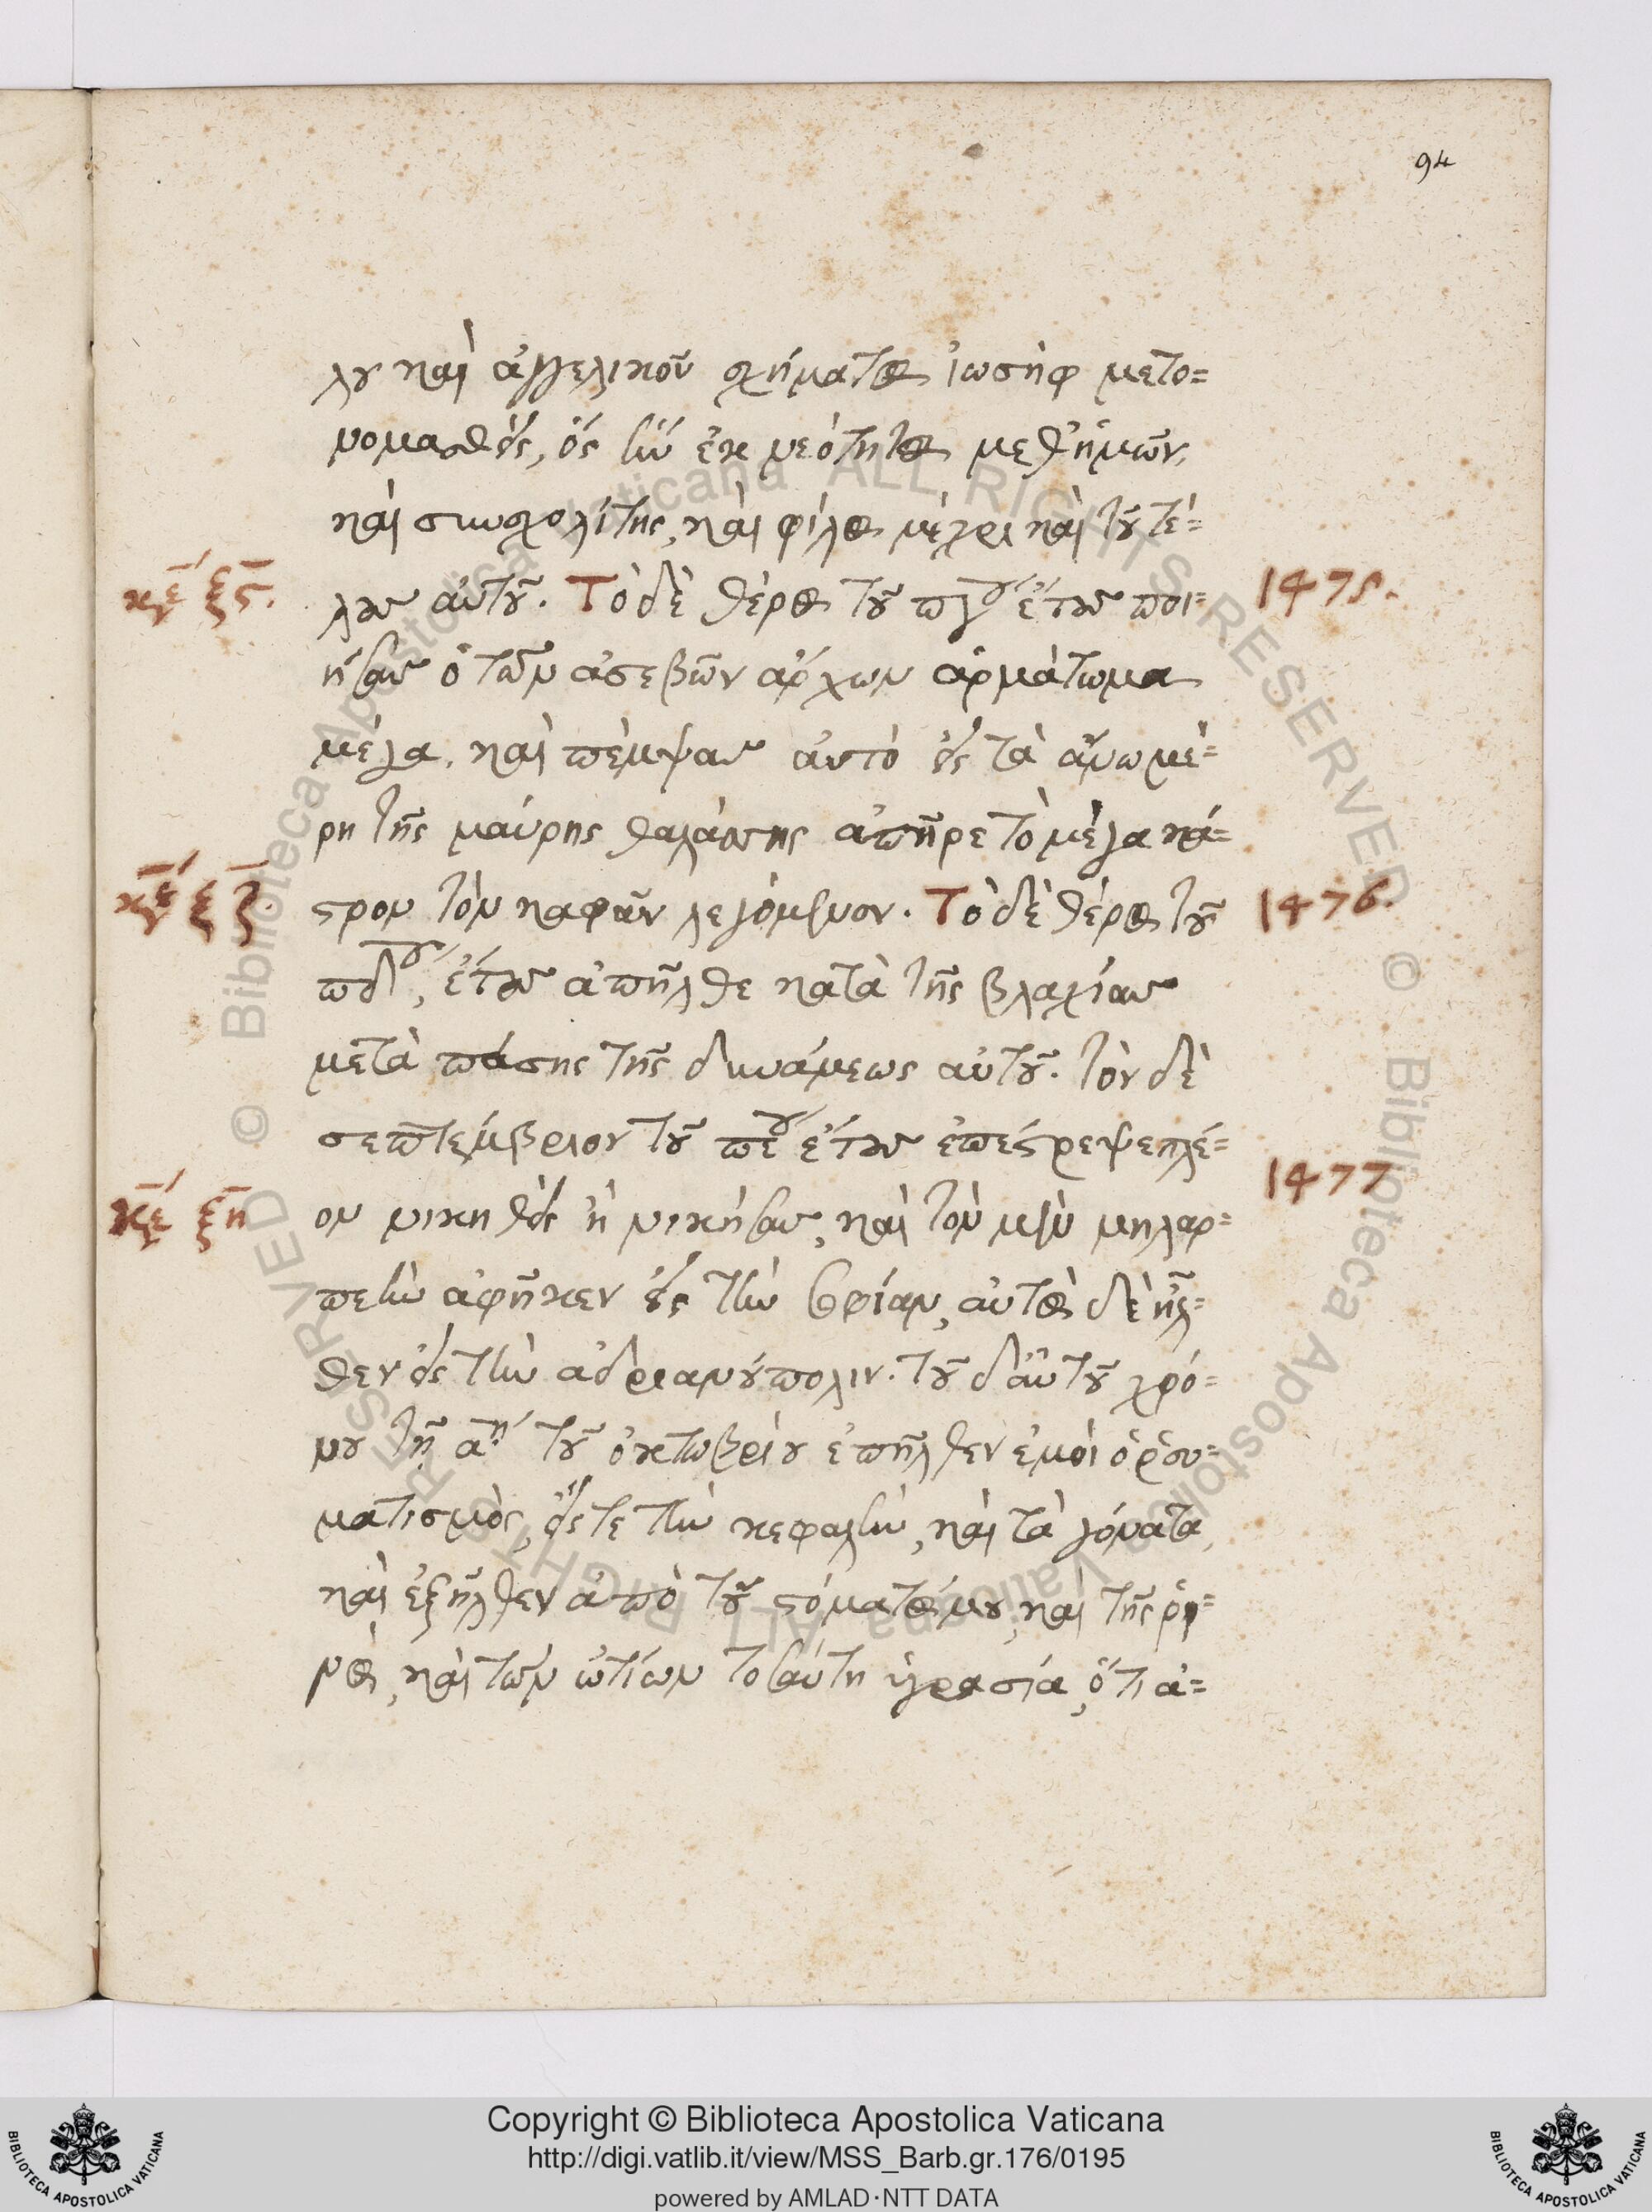 94
λου καὶ ἀγγελικοῦ σχήματος ἰωσὴφ μετο=
νομασθεὶς, ὃς ἦν ἐκ νεότητος μεθ' ἡμῶν,
καὶ συσχολίτης, καὶ φίλος μέχρι καὶ τοῦ τέ=
κεφ ξϛ. λους αὐτοῦ. Τὸ δὲ θέρος τοῦ πγου ἔτους ποι= 1475.
ήσας ὁ τῶν ἀσεβῶν ἄρχων ἀρμάτωμα
μέγα, καὶ πέμψας αὐτὸ εἰς τὰ ἄνω μέ=
ρη τῆς μαύρης θαλάσσης ἀπῆρε τὸ μέγα κά=
κεφ ξζ. στρον τὸν καφᾶν λεγόμενον. Τὸ δὲ θέρος τοῦ 1476.
πδου, ἔτους ἀπῆλθε κατὰ τῆς βλαχίας
μετὰ πάσης τῆς δυνάμεως αὐτοῦ. τὸν δὲ
σεπτέμβριον τοῦ πεου ἔτους ἐπέστρεψε πλέ=
κεφ ξη ον νικηθεὶς ἢ νικήσας, καὶ τὸν μὲν μηλαρ= 1477
πεὴν ἀφῆκεν εἰς τὴν σοφίαν, αὐτὸς δὲ ἦλ=
θεν εἰς τὴν ἀδριανούπολιν. τοῦ δ' αὐτοῦ χρό=
νου τῇ αῃ τοῦ ὀκτωβρίου ἐπῆλθεν ἐμοὶ ὁ ῥευ=
ματισμὸς, εἴς τε τὴν κεφαλὴν, καὶ τὰ γόνατα,
καὶ ἐξῆλθεν ἀπὸ τοῦ στόματός μου, καὶ τῆς ῥι=
νὸς, καὶ τῶν ὠτίων τοσαύτη ὑγρασία, ὅτι ἀ=
Copyright © Biblioteca Apostolica Vaticana
http://digi.vatlib.it/view/MSS_Barb.gr.176/0195
powered by AMLAD·NTT DATA
BIBLIOTECA APOSTOLICA VATICANA
BIBLIOTECA APOSTOLICA VATICANA
© Biblioteca Apostolica Vaticana ALL RIGHTS RESERVED
© Biblioteca Apostolica Vaticana ALL RIGHTS RESERVED